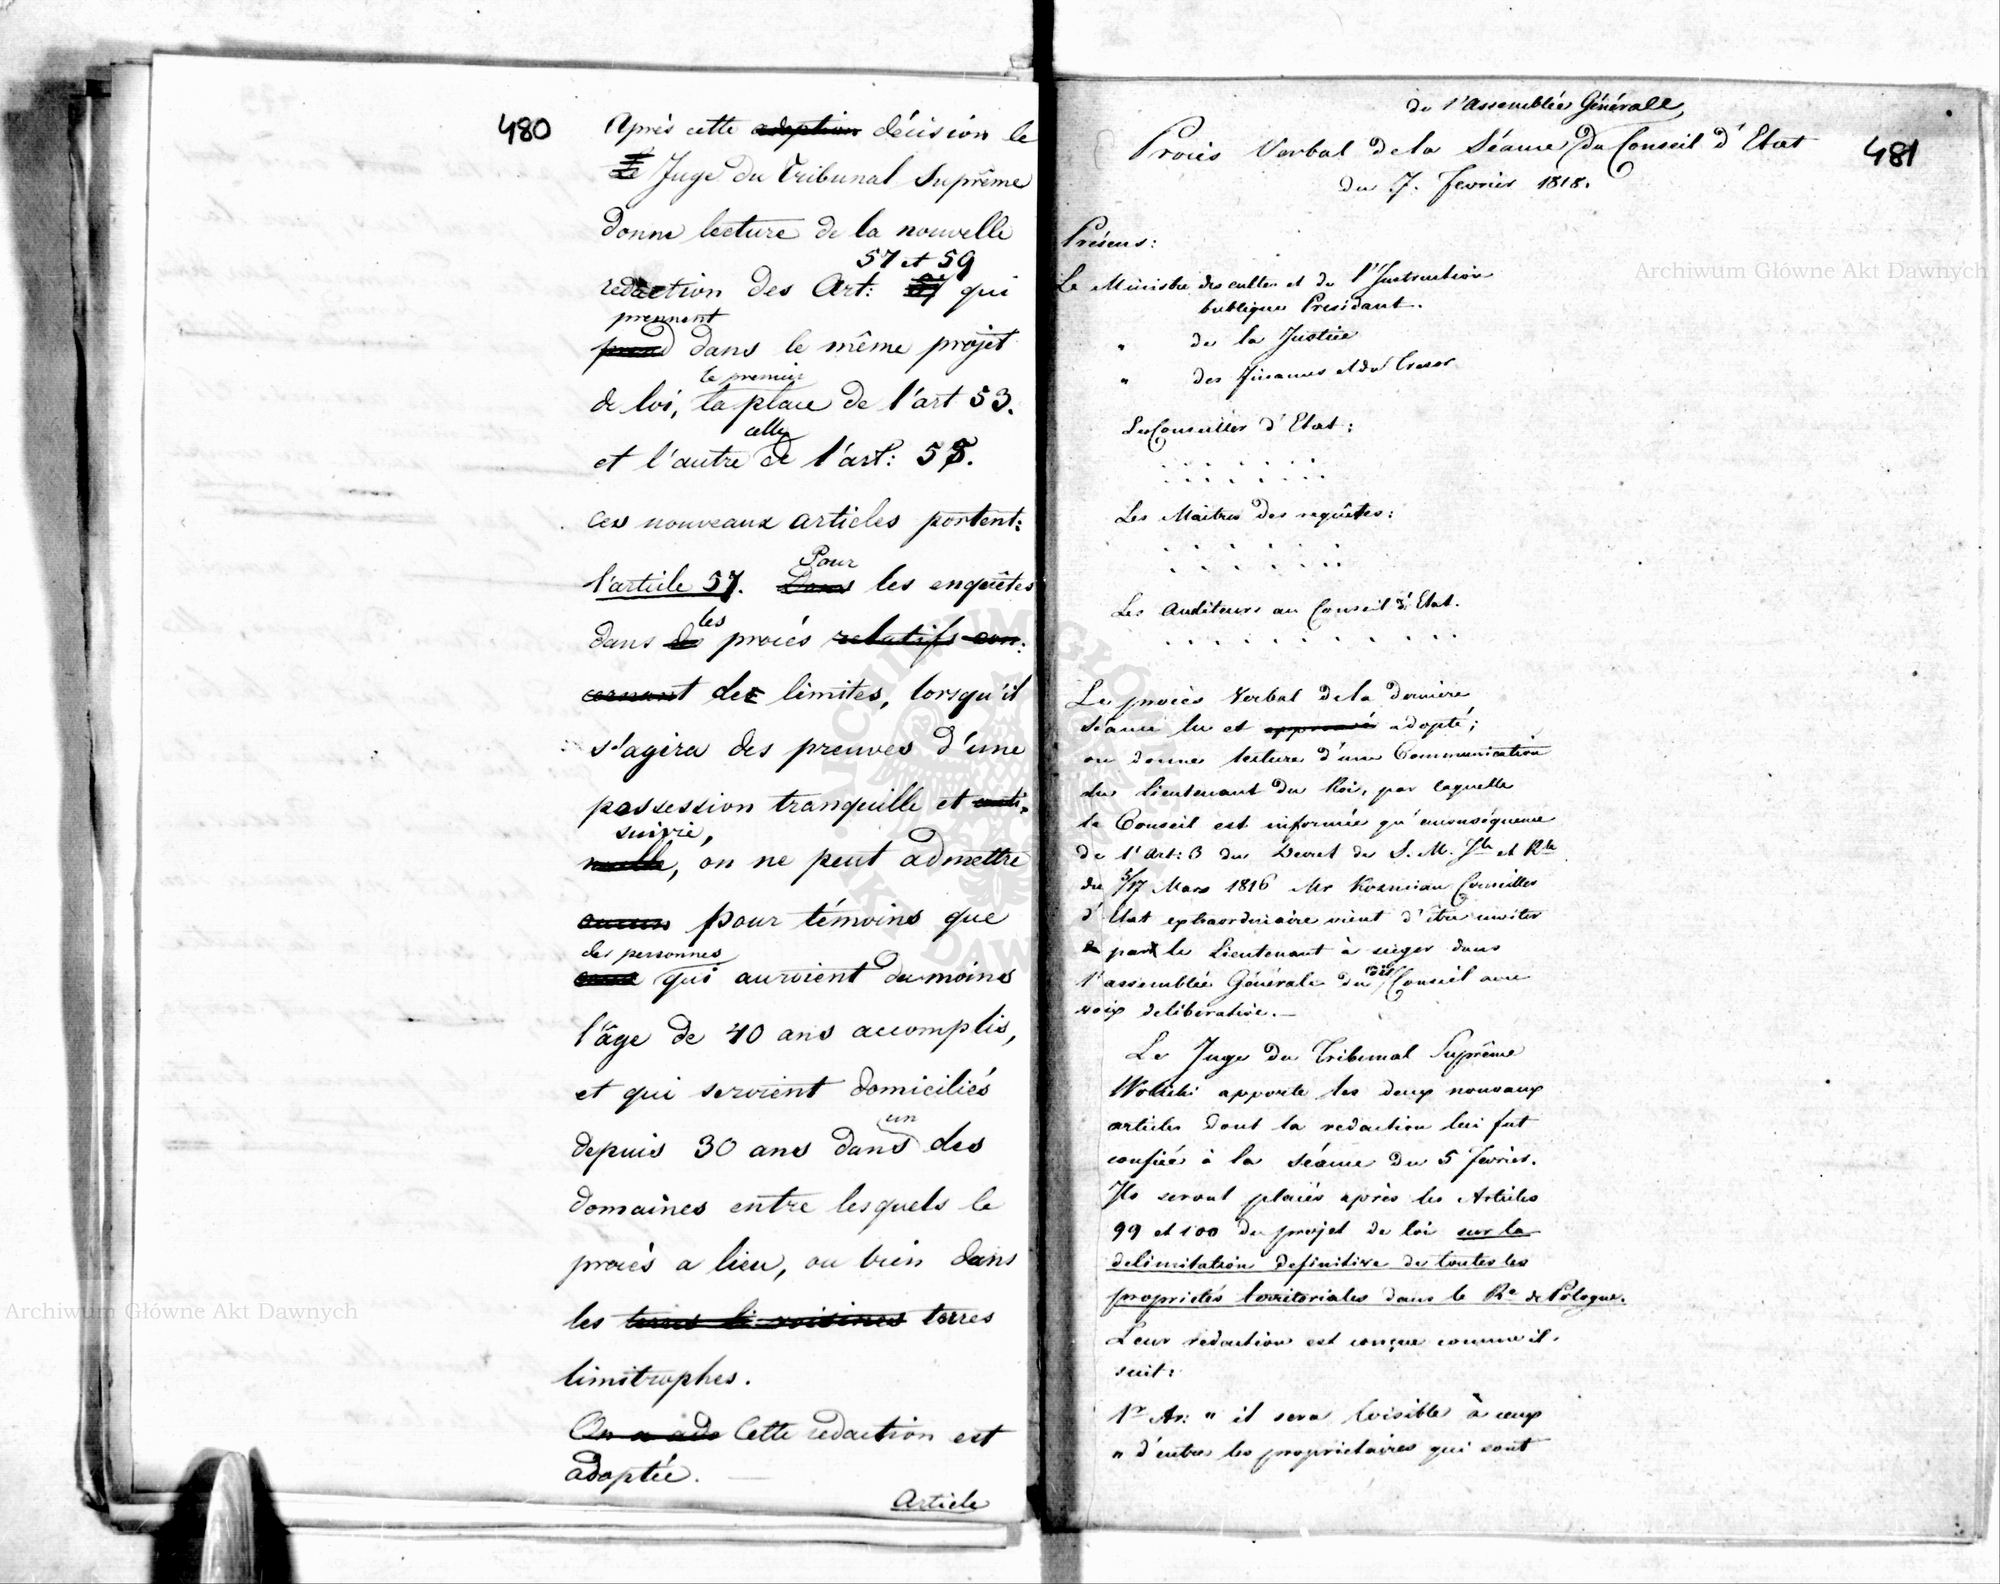 480
Après cette adoption décision le
Le Juge du Tribunal Suprême
donne lecture de la nouvelle
57 et 59
redaction des Art: 57 qui
prennent
prend dans le même projet
le premier
de loi, la place de l'art 53.
celle
et l'autre de l'art: 58.
ces nouveaux articles portent:
Pour
l'article 57. Dans les enquêtes
les
dans de procés relatifs con:
cernant des limites, lorsqu'il
s'agira des preuves d'une
possession tranquille et conti:
suivie,
nuelle, on ne peut admettre
aucuns pour témoins que
des personnes
ceux qui auroient du moins
l'âge de 40 ans accomplis,
et qui seroient domiciliés
un
depuis 30 ans dans des
domaines entre lesquels le
procés a lieu, ou bien dans
les terres li voisines terres
limitrophes.
On a ado Cette redaction est
adoptée. —
Article
481
de l'Assemblée Générale
Procès Verbal de la Séance du Conseil d'Etat
du 7. fevrier 1818.
Présens:
Le Ministre des cultes et de l'Instruction
publique Presidant.
" de la Justice
" des Finances et du Tresor
Les Conseiller d'Etat:
Les Maitres des requêtes:
Les Auditeurs au Conseil d'Etat.
Le procès Verbal de la dernière
séance lu et approuvé adopté;
on donne lecture d'une Communication
du Lieutenant du Roi, par laquelle
le Conseil est informée qu'enconséquence
de l'Art: 3 du Decret de S. M. Jle et Rle
du 5/17 Mars 1816 Mr Kozmian Conseiller
d'Etat extraordinaire vient d'être inviter
par le Lieutenant à sieger dans
l'assemblée Générale du dit Conseil avec
voix deliberative. —
Le Juge du Tribunal Suprême
Wolicki apporte les deux nouveaux
articles dont la redaction lui fut
confiée à la séance du 5 fevrier.
Ils seront placés après les Articles
99 et 100 du projet de loi sur la
delimitation definitive de toutes les
proprietés territoriales dans le Re de Pologne.
Leur redaction est conçue comme il
suit:
1r Ar: " il sera loisible à ceux
" d'entre les proprietaires qui sont
Archiwum Główne Akt Dawnych
Archiwum Główne Akt Dawnych